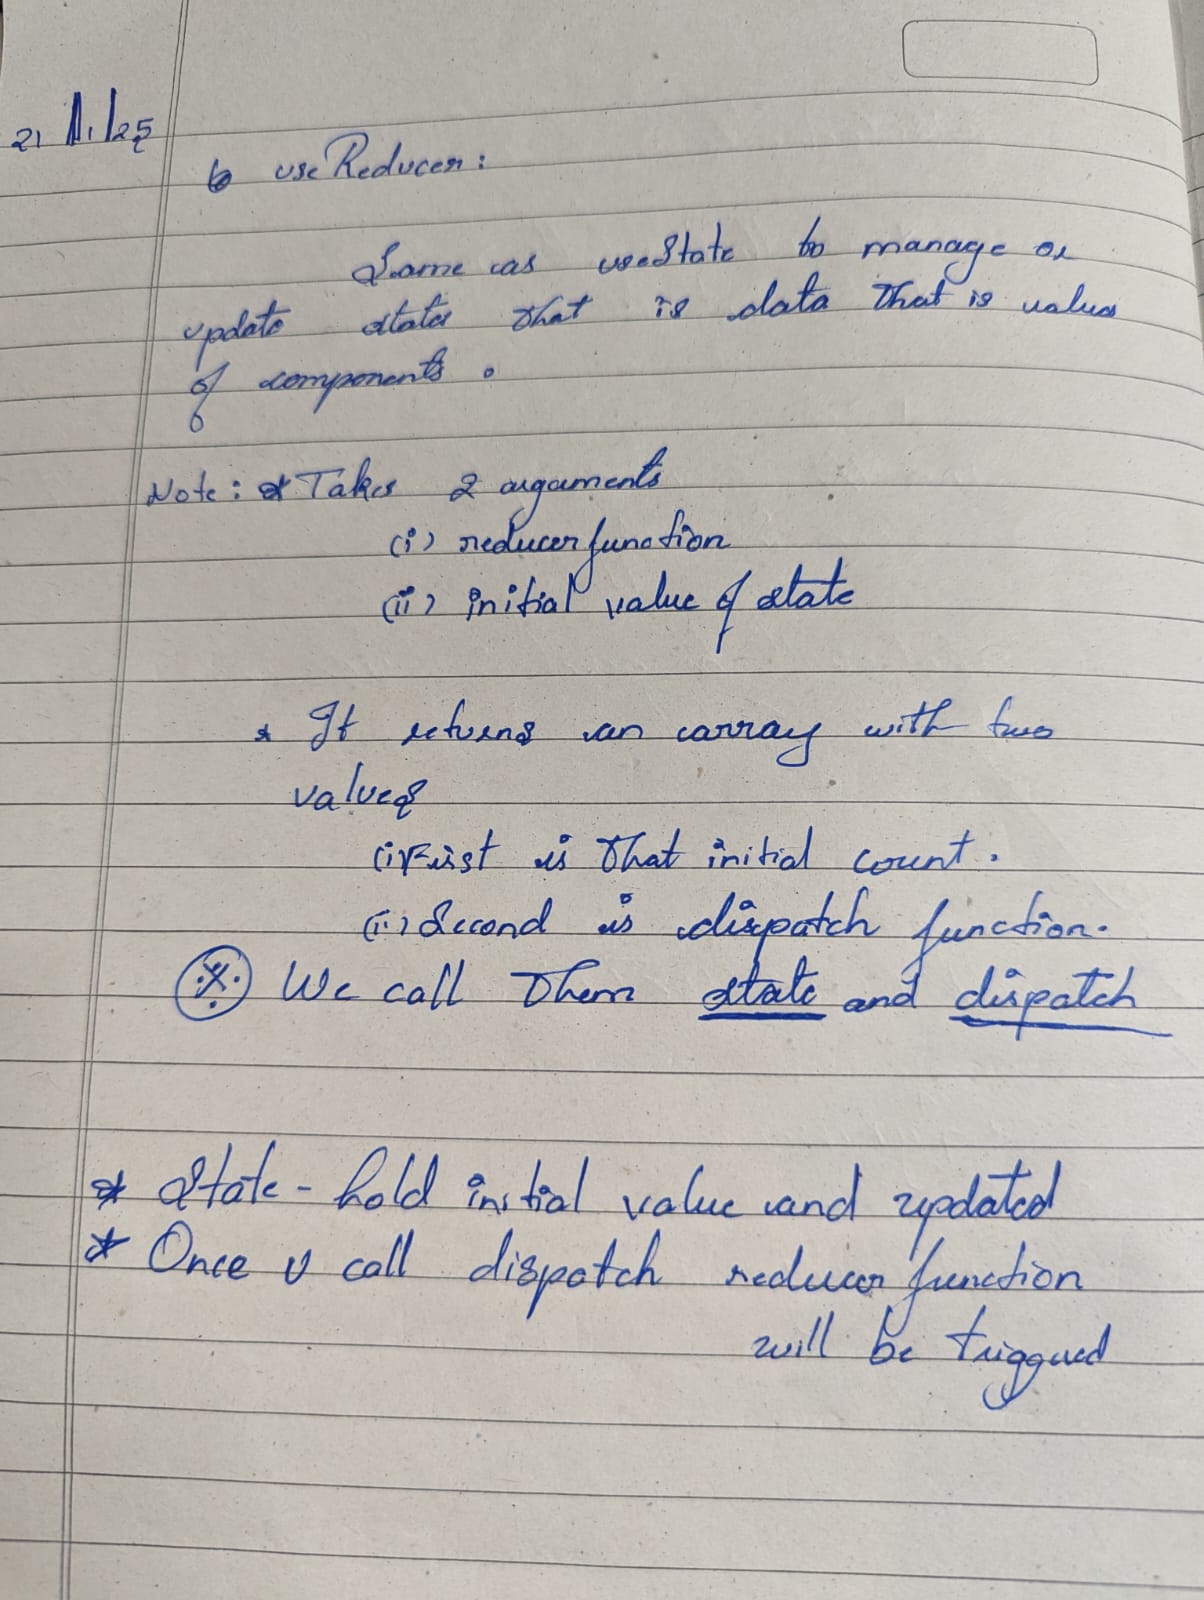 21/11/25
6 useReducer:
Same as useState to manage or
update states that is data that is values
of components.
Note: * Takes 2 arguments
(i) reducer function
(ii) initial value of state
* It returns an array with two
values
(i) First is that initial count.
(ii) Second is dispatch function.
※ We call them state and dispatch
* State - hold initial value and updated
* Once u call dispatch reducer function
will be triggered